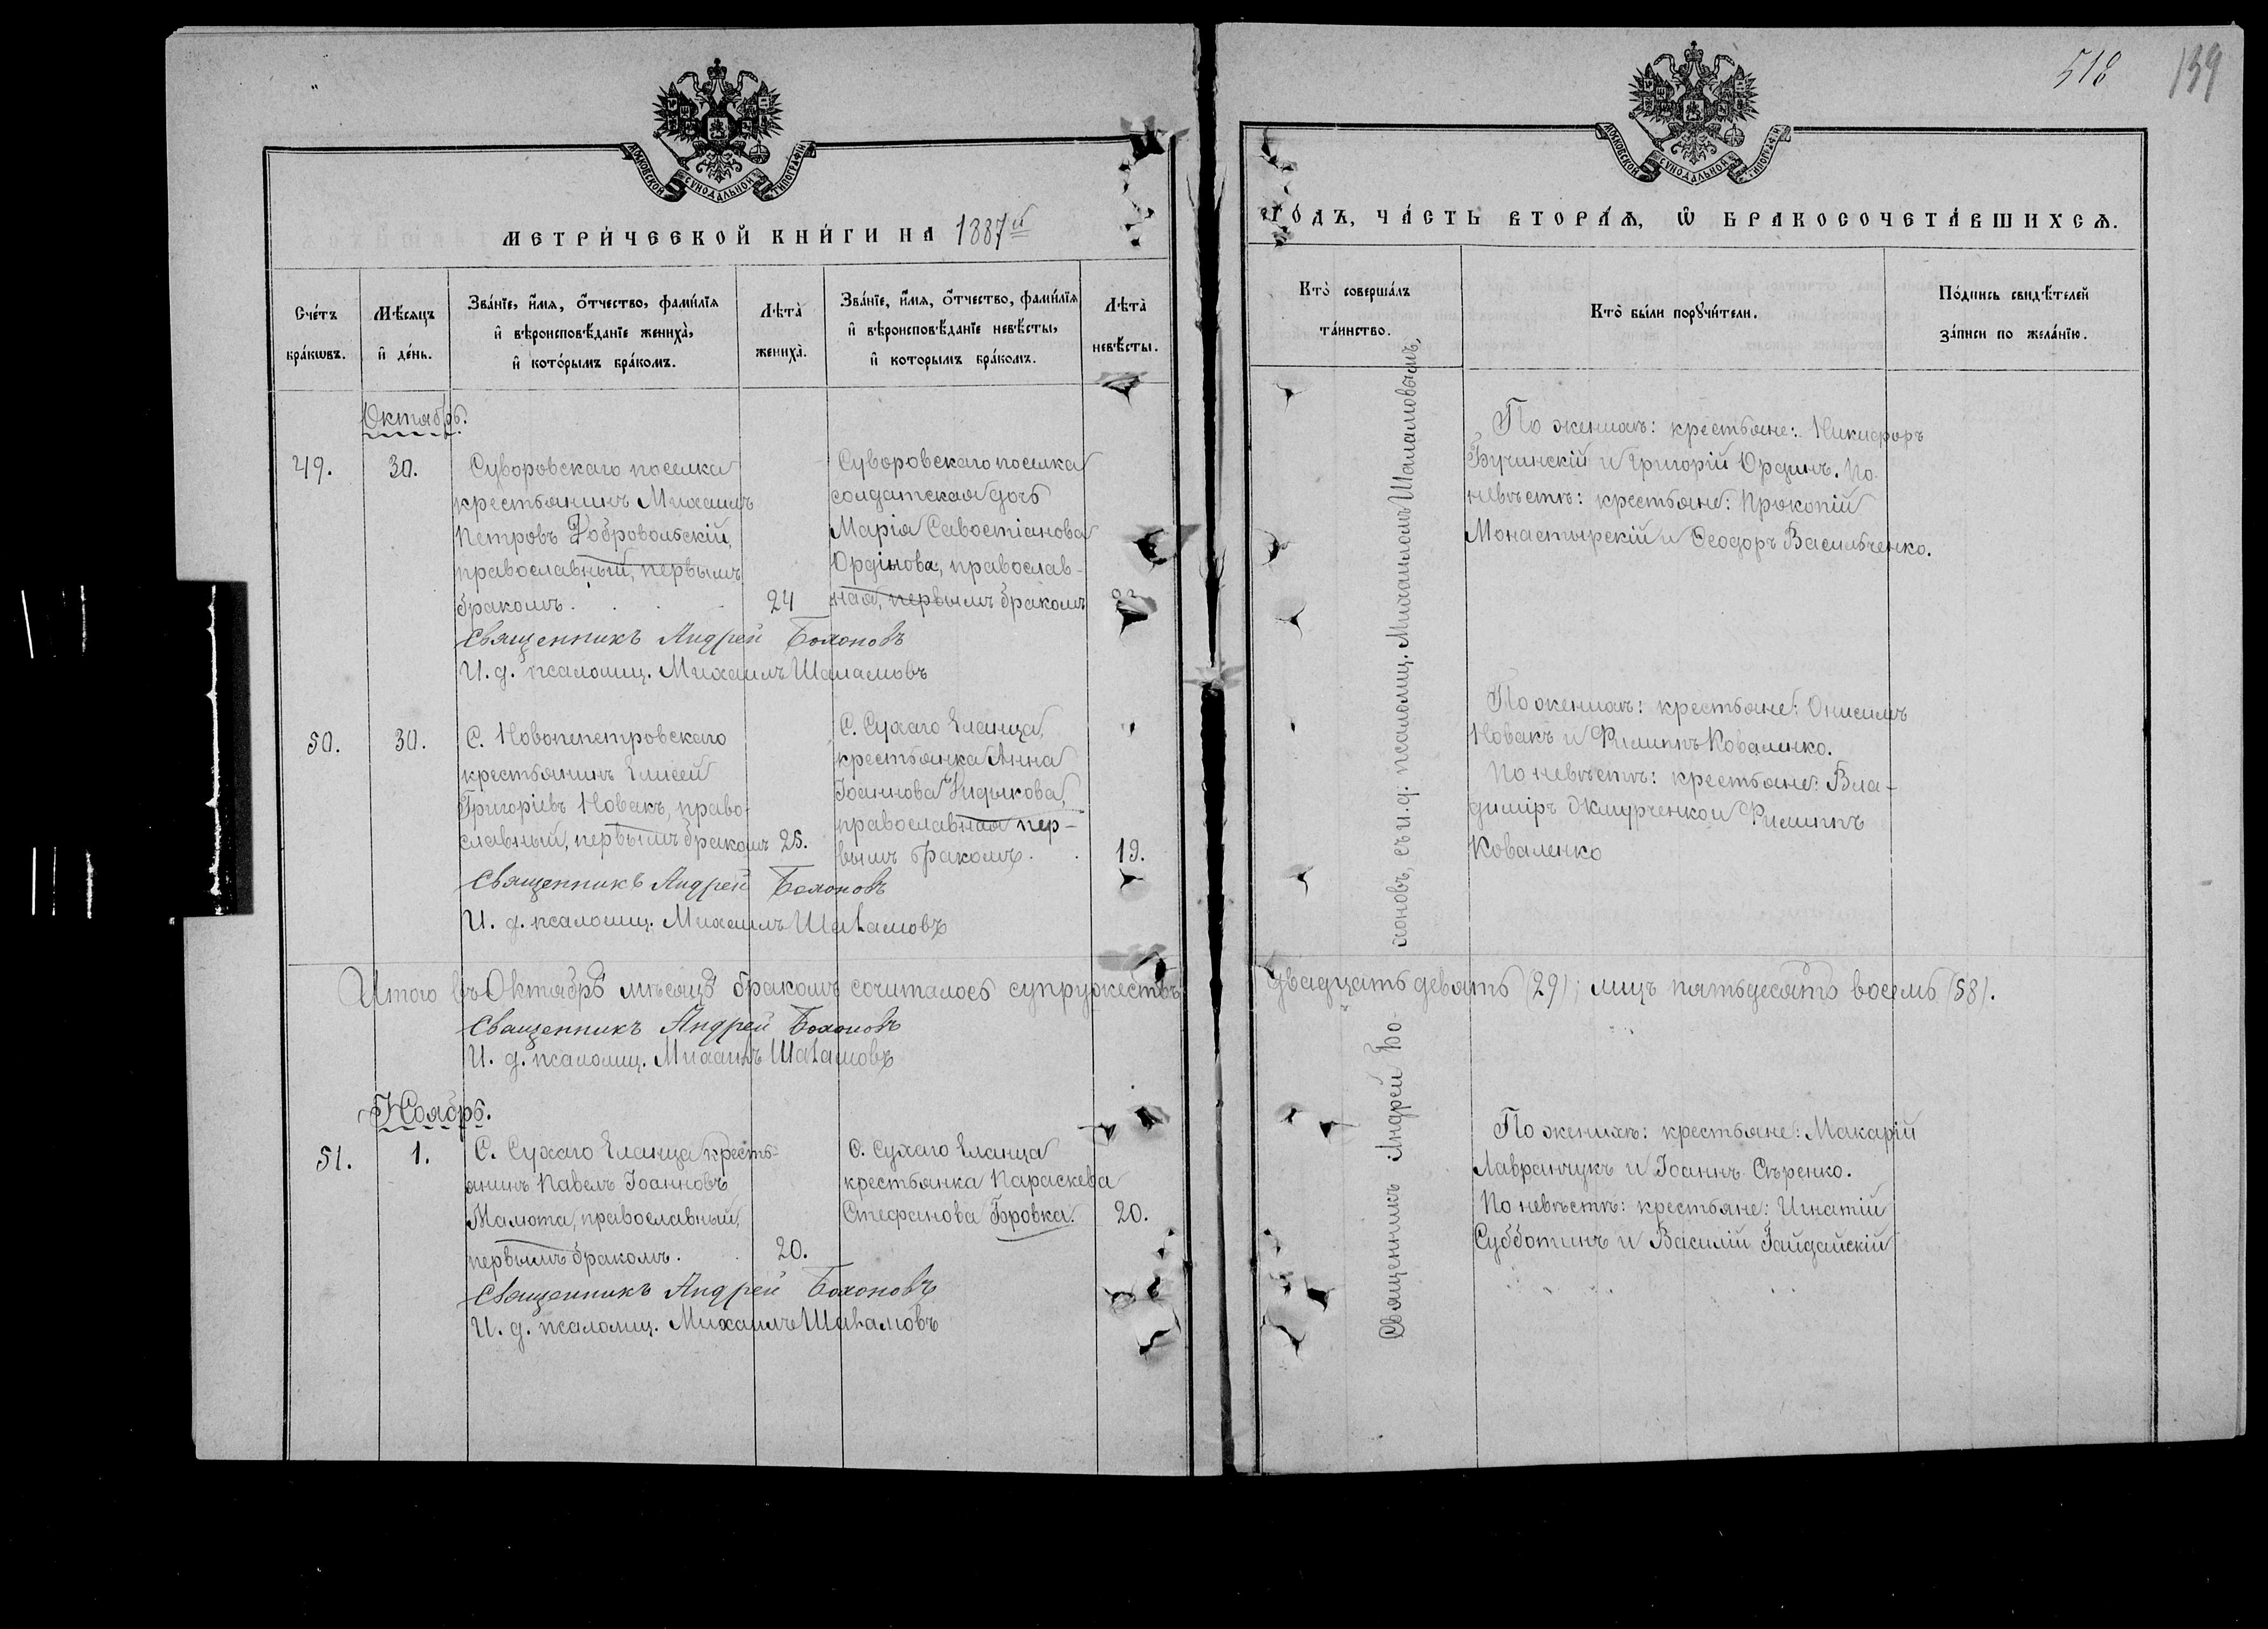 518 139
МОСКОВСКОЙ СУНОДАЛЬНОЙ ТИПОГРАФІИ
МОСКОВСКОЙ СУНОДАЛЬНОЙ ТИПОГРАФІИ
МЕТРИ́ЧЕСКОЙ КНИ́ГИ НА 1887й
ГО́ДЪ, ЧА́СТЬ ВТОРА́Я, Ѡ БРАКОСОЧЕТА́ВШИХСЯ.
Сче́тъ
бра́кѡвъ.
Мѣ́сяцъ
и҆ де́нь.
Зва́нїе, и҆́мя, о҆́тчество, фами́лїя
и҆ вѣроисповѣ́данїе жениха̀,
и҆ кото́рымъ бра́комъ.
Лѣта̀
жениха̀.
Зва́нїе, и҆́мя, о҆́тчество, фами́лїя
и҆ вѣроисповѣ́данїе невѣ́сты,
и҆ которымъ бра́комъ.
Лѣта̀
невѣ́сты.
Кто̀ соверша́лъ
та́инство.
Кто̀ бы́ли порꙋчи́тели.
По́дпись свидѣ́телей
за́писи по жела́нїю.
Октябрь.
49.
30.
Суворовскаго поселка
крестьянинъ Михаилъ
Петровъ Добровольскій,
православный, первымъ
бракомъ.
24
Суворовскаго поселка
солдатская дочь
Марія Савостіанова
Ордінова, православ-
ная, первымъ бракомъ
Священникъ Андрей Бохоновъ
И. д. псаломщ. Михаилъ Шаламовъ
По женихѣ: крестьяне: Никифоръ
Бучинскій и Григорій Ординъ. По
невѣстѣ: крестьяне: Прокопій
Монастырскій и Ѳеодоръ Васильченко.
50.
30.
С. Новопепетровскаго
крестьянинъ Елисей
Григоріевъ Новакъ, право-
славный, первымъ бракомъ
25.
С. Сухаго Еланца,
крестьянка Анна
Іоаннова
православная пер-
вымъ бракомъ.
19.
Священникъ Андрей Бохоновъ
И. д. псаломщ. Михаилъ Шаламовъ
По женихѣ: крестьяне: Онисимъ
Новакъ и Филиппъ Коваленко.
По невѣстѣ: крестьяне: Вла-
диміръ Жмурченко и Филиппъ
Коваленко
Итого въ Октябрѣ мѣсяцѣ бракомъ сочиталось супружествъ двадцать девять (29); лицъ пятьдесятъ восемь (58).
Священникъ Андрей Бохоновъ
И. д. псаломщ. Михаилъ Шаламовъ
Ноябрь.
51.
1.
С. Сухаго Еланца кресть-
янинъ Павелъ Іоанновъ
Малюта, православный,
первымъ бракомъ.
20.
С. Сухаго Еланца
крестьянка Параскева
Стефанова Бровка.
20.
Священникъ Андрей Бохоновъ
И. д. псаломщ. Михаилъ Шаламовъ
По женихѣ: крестьяне: Макарій
Лавранчукъ и Іоаннъ Сѣренко.
По невѣстѣ: крестьяне: Игнатій
Субботинъ и Василій Гайдайскій
Священникъ Андрей Бо-хоновъ, съ и.д. псаломщ. Михаиломъ Шаламовымъ,